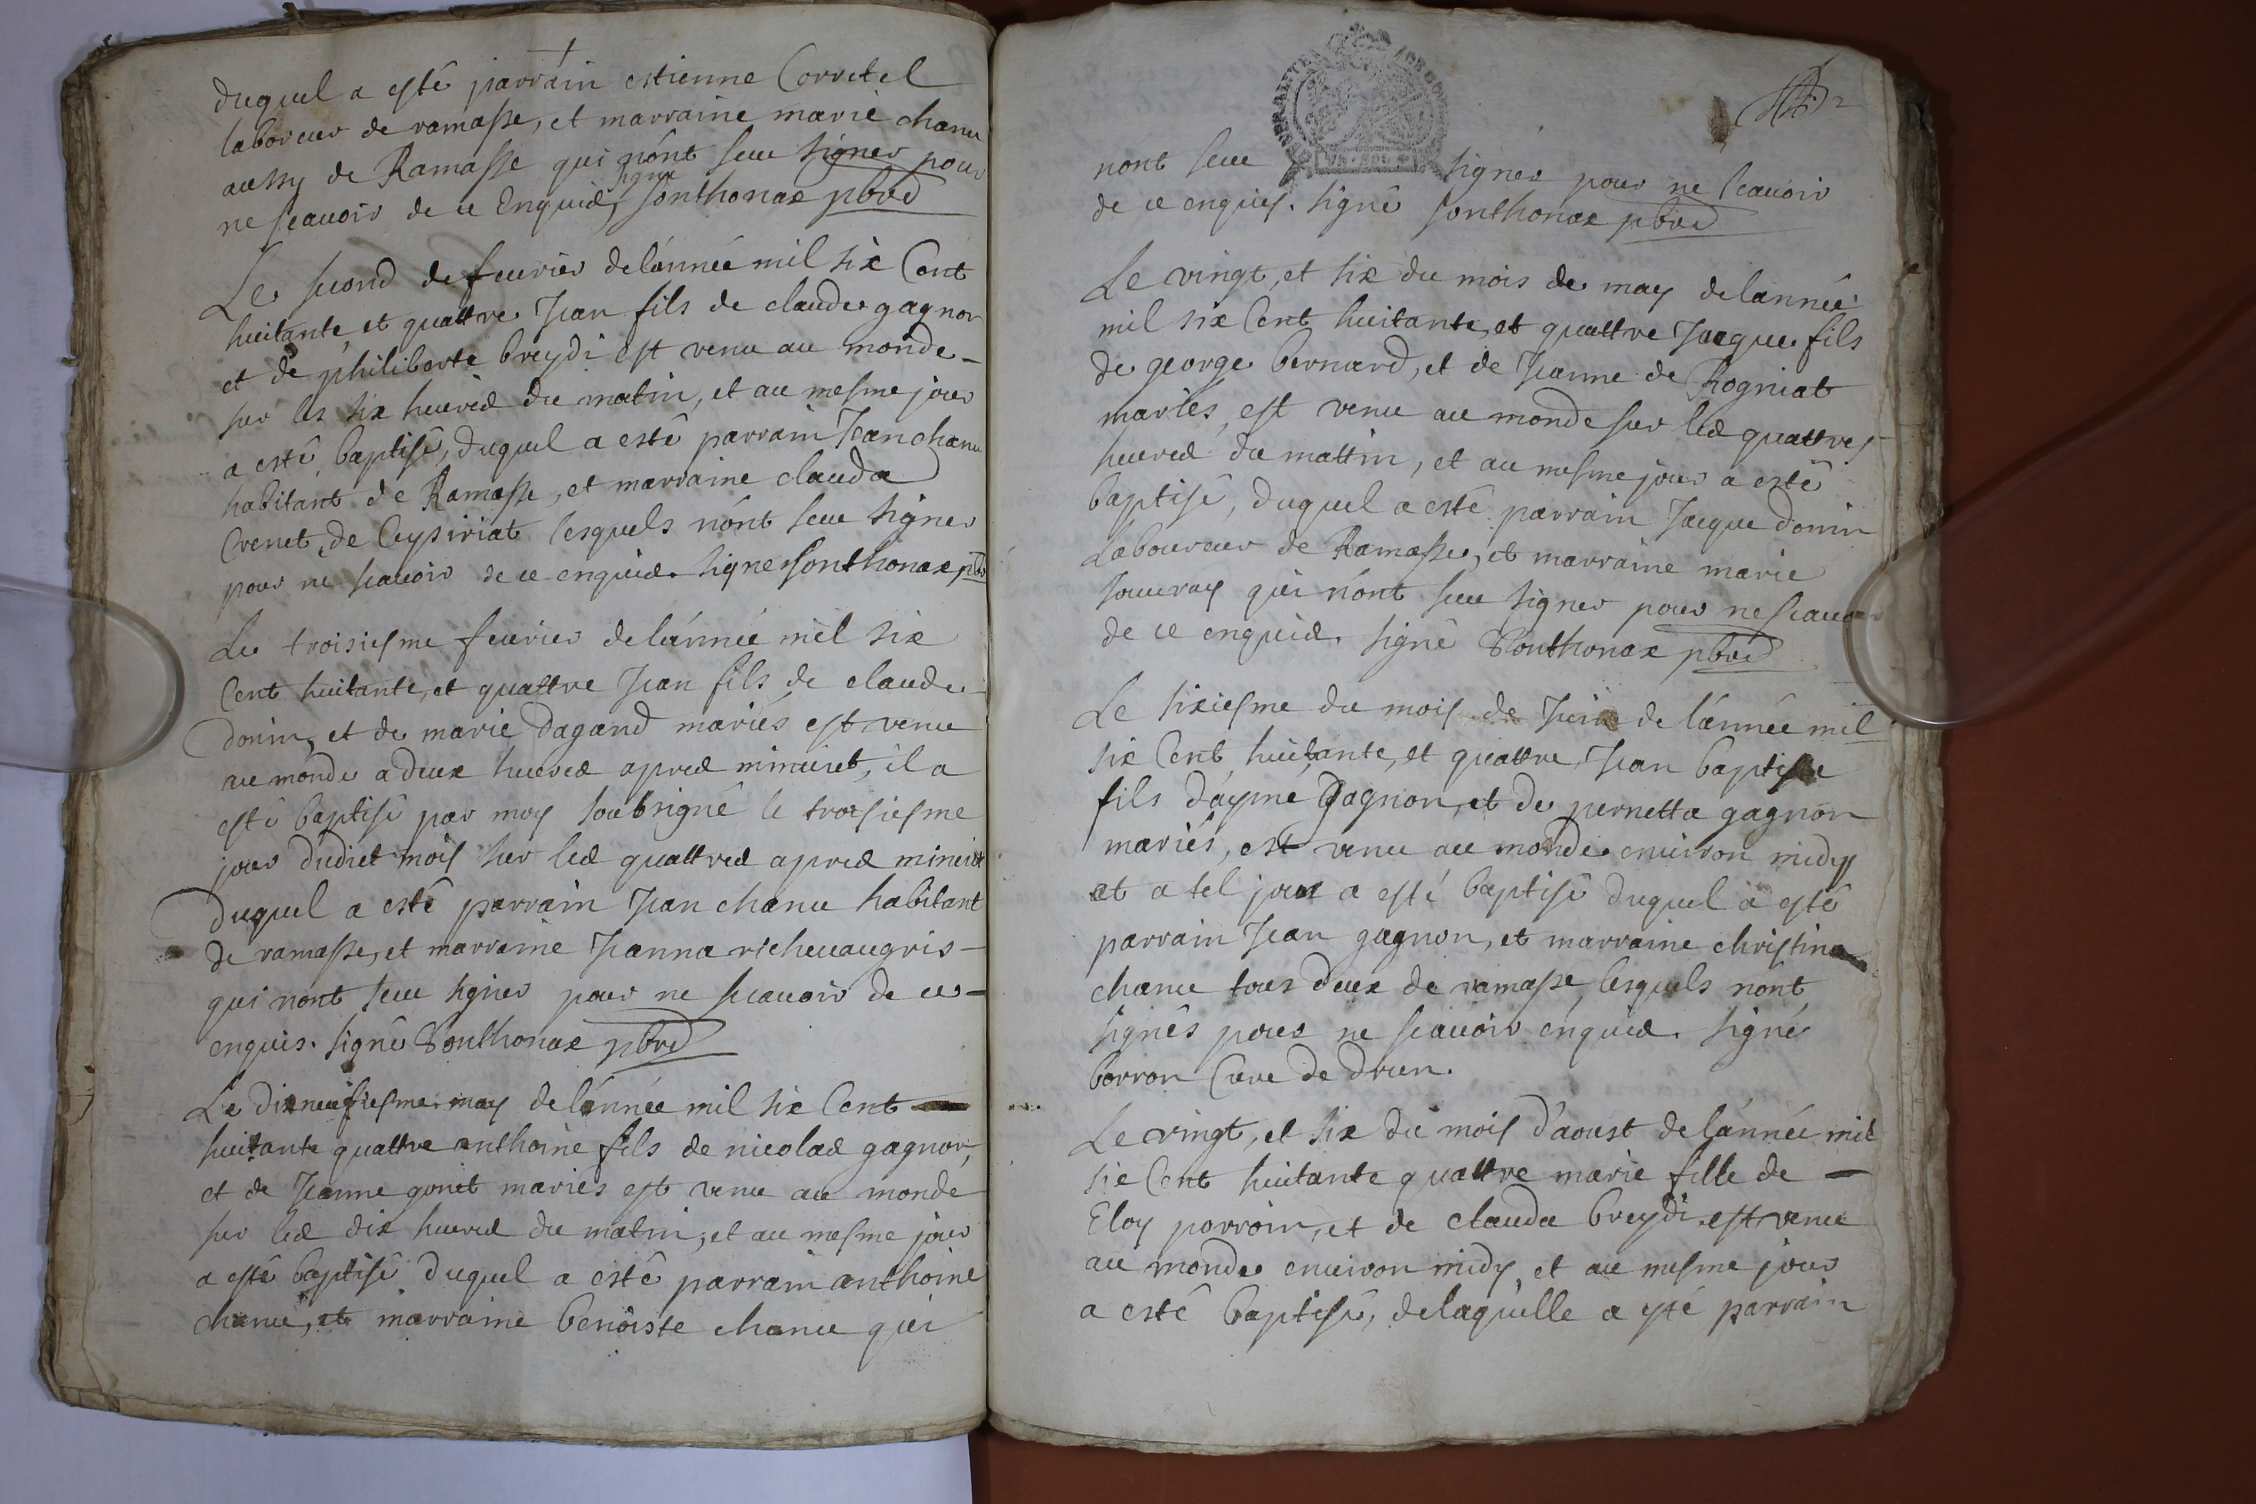 duquel a esté parrain estienne Corretel
laboreur de ramasse, et marraine marie chanu
aussy de Ramasse qui nónt sceu signer pour
ne scauoir de ce Enquis, signé sonthonax pbre
Le second de feurier de lánnée mil six Cent
huitante et quattre Jean fils de claude gagnon
et de philiberte breydi est venu au monde
sur les six heures du matin, et au mesme jour
a esté baptisé, duquel a esté parrain Jean chanu
habitant de Ramasse, et marraine clauda
Crenet de Ceysiriat lesquels nónt sceu signer
pour ne scauoir de ce enquis. signe sonthonax pbre
Le troisiesme feurier de lánnée mil six
Cent huitante, et quattre Jean fils de claude
donin, et de marie dagand mariés est venu
au monde a deux heures apres minuict, il a
esté baptisé par moy soubsigné le troisiesme
jour dudict mois sur les quattres apres minuict
duquel a esté parrain Jean chanu habitant
de ramasse, et marraine Jeanna richeuaugris
qui nont sceu signer pour ne scauoir de ce
enquis. signé Sonthonax pbre
Le dixneufiesme may de lánnée mil six Cent
huitante quattre anthoine fils de nicolas gagnon,
et de Jeanne gonet mariés est venu au monde
sur les dix heures du matin, et au mesme jour
a esté baptisé duquel a esté parrain anthoine
chanu, et marraine benoiste chanu qui
nont sceu signer pour ne scauoir
de ce enquis. signé sonthonax pbre
Le vingt, et six du mois de may de lannée
mil six Cent huitante, et quattre Jacque fils
de george bernard, et de Jeanne de Rogniat
mariés, est venu au monde sur les quattres
heures du mattin, et au mesme jour a esté
baptisé, duquel a esté parrain Jacque donin
Laboureur de Ramasse, et marraine marie
Jouuray qui nónt sceu signer pour ne scauoir
de ce enquis. signé Sonthonax pbre
Le sixiesme du mois de Juin de lánnée mil
six Cent huitante, et quattre Jean baptiste
fils dáyme Gagnon, et de pernetta gagnon
mariés, est venu au monde enuiron midy
et a tel jour a esté baptisé duquel a esté
parrain Jean gagnon, et marraine christina
chanu tous deux de ramasse, lesquels nónt
signés pour ne scauoir enquis. signé
borron Cure de drun.
Le vingt, et six du mois d'aoust de lánnée mil
six Cent huitante quattre marie fille de
Eloy porroin, et de clauda breydi est venue
au monde enuiron midy, et au mesme jour
a esté baptisé, delaquelle a esté parrain